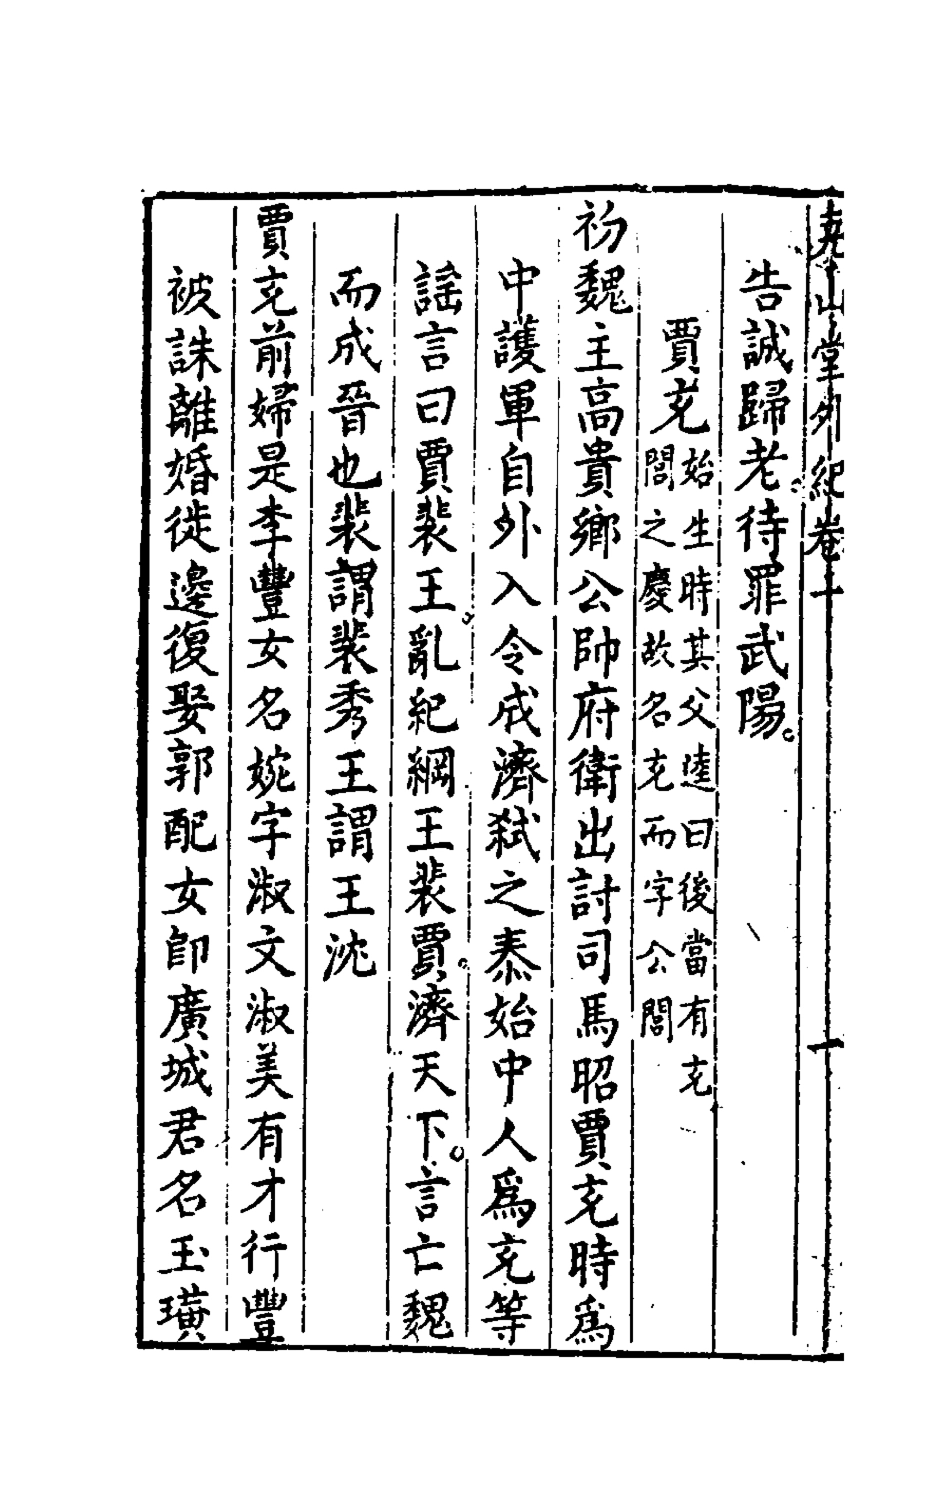 堯山堂外紀卷十 一
告誠歸老待罪武陽。
賈充 始生時其父逵曰後當有充
閭之慶故名充而字公閭
初魏主高貴鄉公帥府衛出討司馬昭賈充時爲
中護軍自外入令成濟弒之泰始中人爲充等
謡言曰賈裴王。亂紀綱王裴賈。濟天下。言亡魏
而成晉也裴謂裴秀王謂王沈
賈充前婦是李豐女名婉字淑文淑美有才行豐
被誅離婚徙邊復娶郭配女即廣城君名玉璜